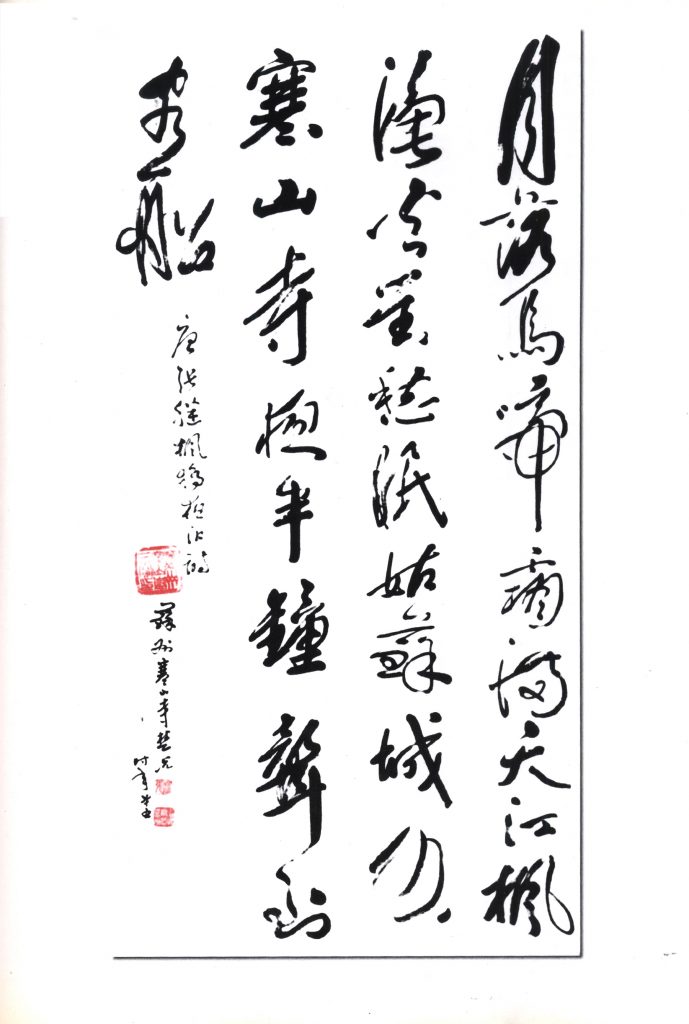 月落烏啼霜满天江楓
漁火對愁眠姑蘇城外
寒山寺夜半鐘聲到
客船
唐張繼楓橋夜泊詩
蘇州寒山寺楚光
时年